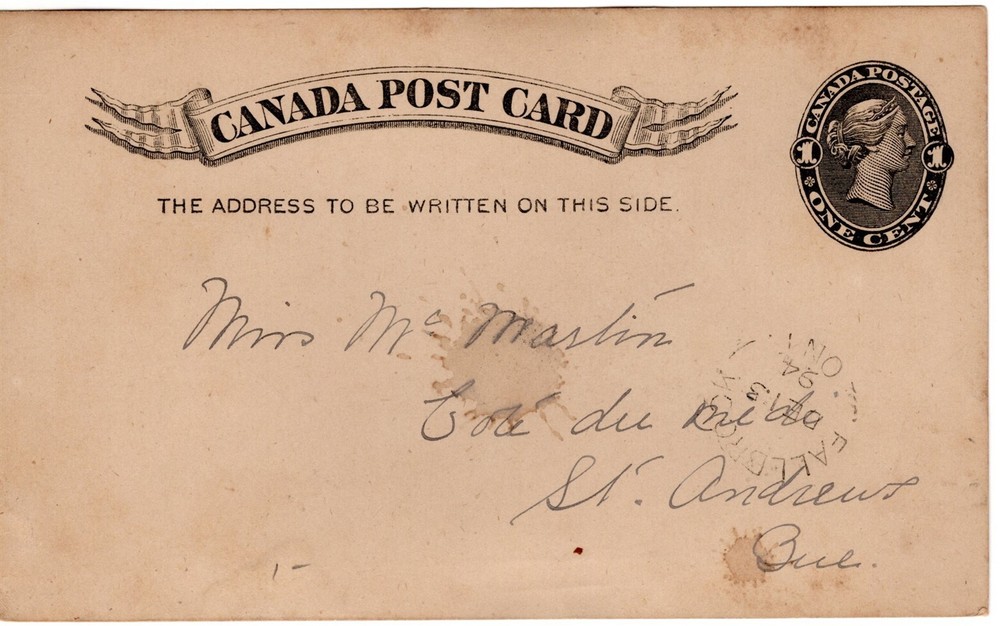 CANADA POST CARD
CANADA POSTAGE
1 1
ONE CENT
THE ADDRESS TO BE WRITTEN ON THIS SIDE.
Miss Mc Martin
Coté du midi
St. Andrews
Que.
ONT
94
3